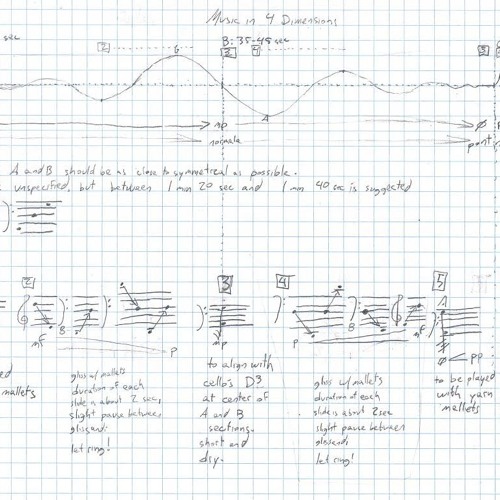 Music in 4 Dimensions
sec
B: 35-45 sec
2
3
4
5
G
A
mp
ø
normale
point
A and B should be as close to symmetrical as possible.
unspecified, but between 1 min 20 sec and 1 min 40 sec is suggested
2
3
4
5
B
B
P
A
mF
P
mp
P
mF
ø
PP
mallets
gliss w/ mallets
duration of each
slide is about 2 sec,
slight pause between
glissandi
let ring!
to align with
cello's D3
at center of
A and B
sections.
short and
dry.
gliss w/ mallets
duration of each
slide is about 2 sec
slight pause between
glissandi
let ring!
to be played
with yarn
mallets